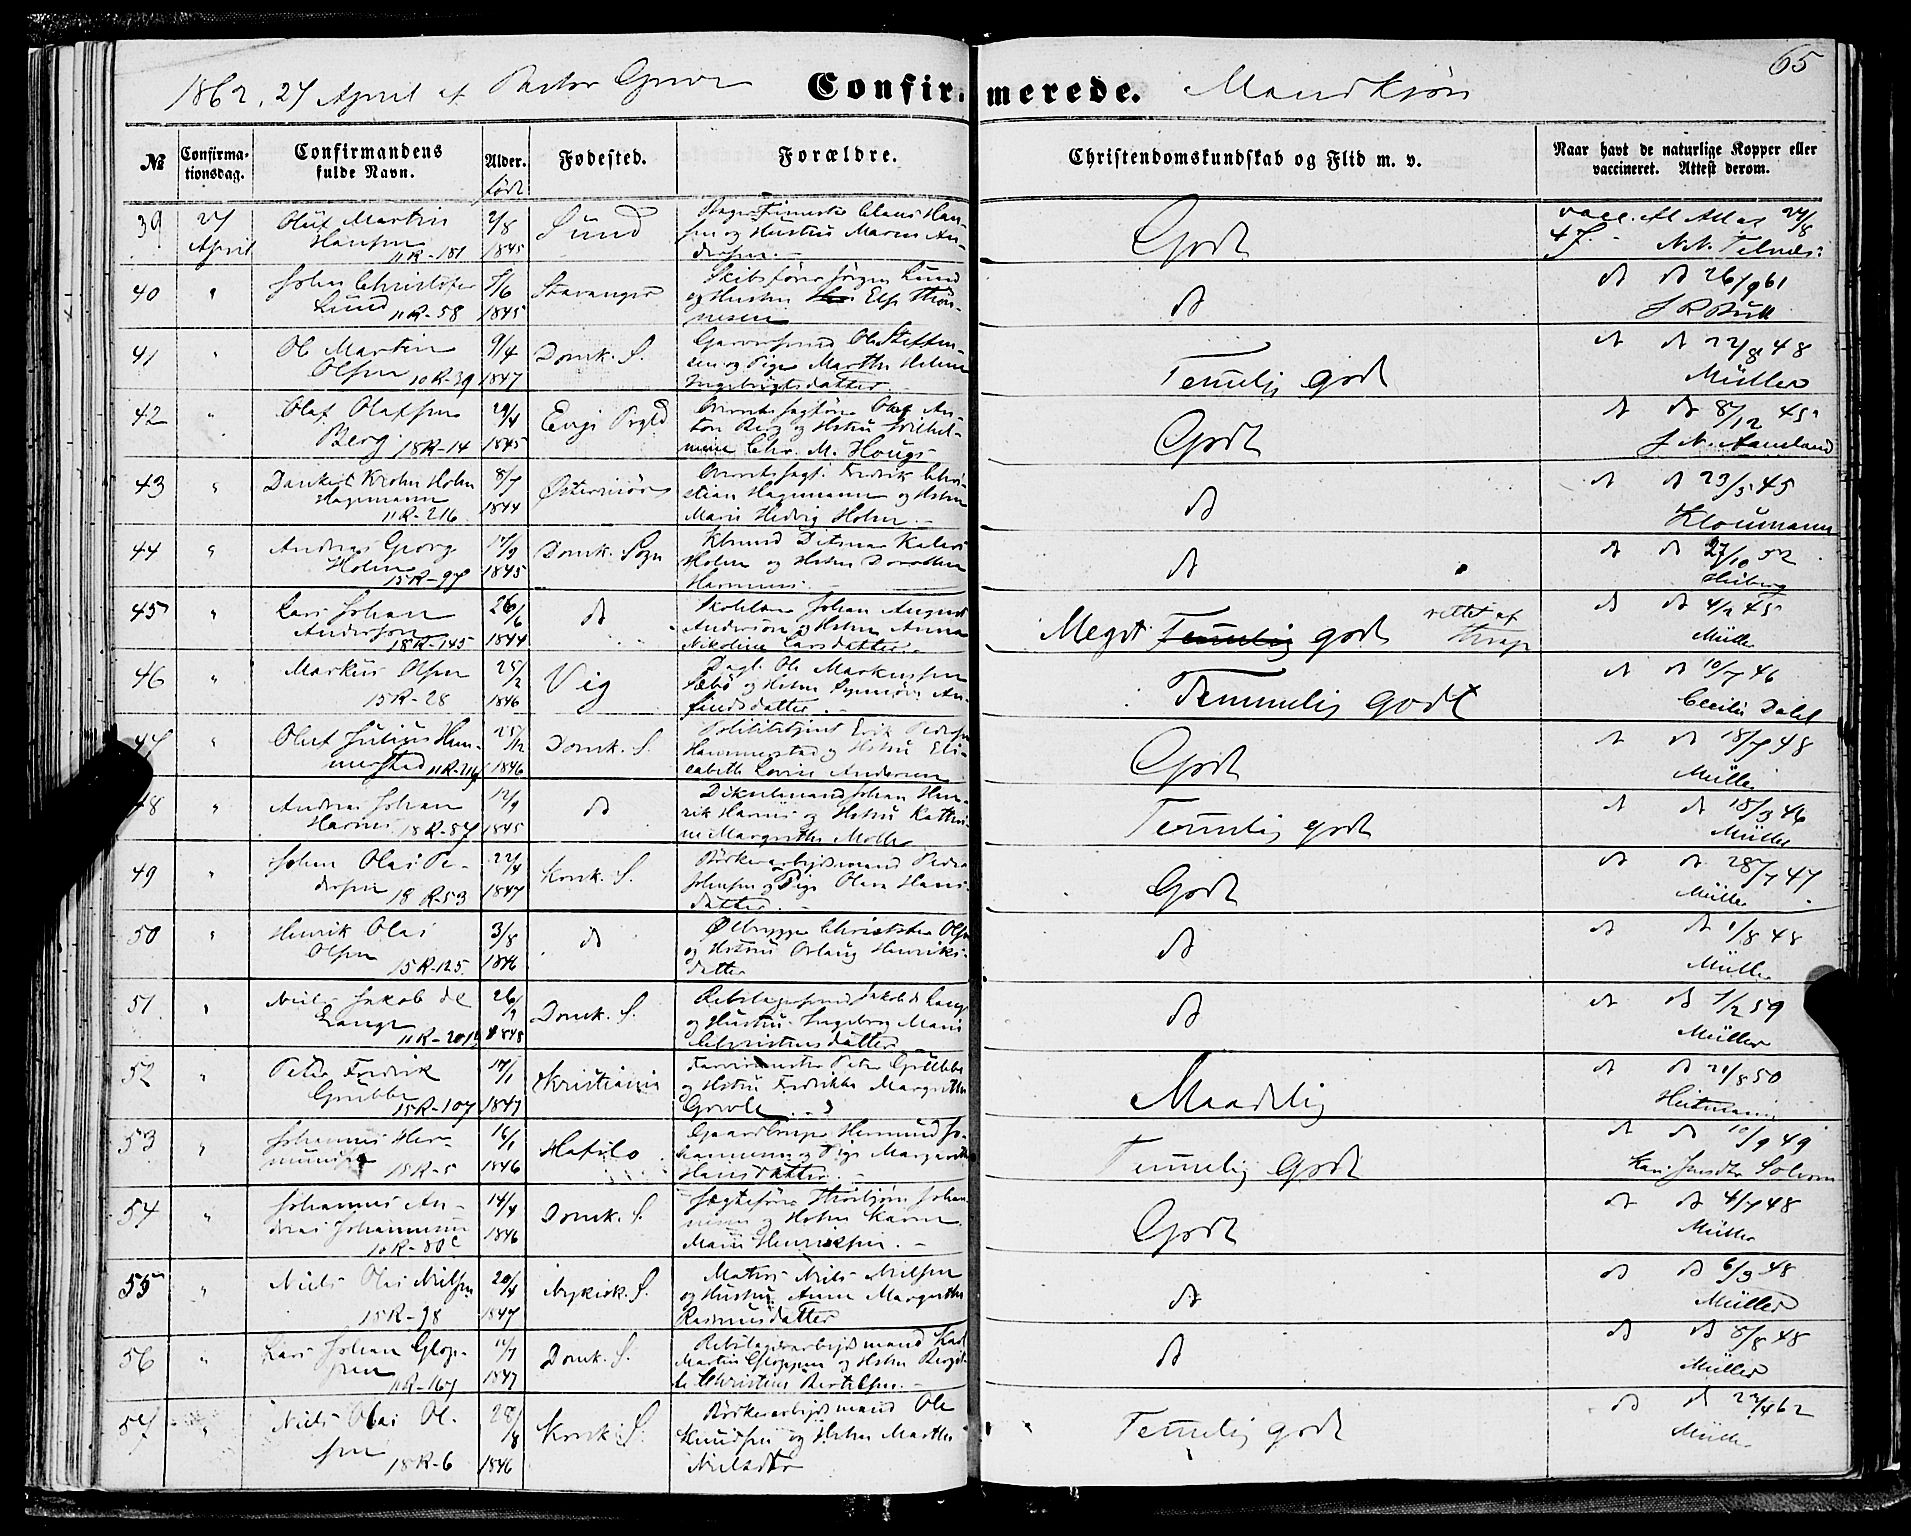 1862. 27 April af Pastor Grove Confirmerede. Mandkjøn 65
No
Confirma-
tionsdag.
Confirmandens
fulde Navn.
Alder.
født
Fødested.
Forældre.
Christendomskundskab og Flid m. v.
Naar havt de naturlige Kopper eller
vaccineret. Attest derom.
39 27 April
Oluf Martin
Hansen
11R-181
2/8
1845
Sund
Claus Han-
sen og Hustru Maren An-
dersen.
Godt
vacc. 24/8
47.
40 "
John Christofer
Lund 11R-58
7/6
1845
Stavanger
Skibsfører Jørgen Lund
og Hustru Else Thøn-
nesen
do
do do 26/9 61
J R Bull
41 "
Ole Martin
Olsen 10R-39
9/4
1847
Domk. S.
Garversvend Ole Steffen-
sen og Pige Marthe Helene
Ingebrigtsdatter
Temmelig godt
do do 22/8 48
Müller
42 "
Olaf Olafsen
Berg 18R-14
29/4
1845
Evje Prgld
Overretssagfører Olaf An-
ton Berg og Hstru Wilhel-
mine Chr. M. Hougs
Godt
do do 8/12 45
43 "
Dankert Krohn Holm
Hagemann
11R-216
8/7
1844
Østerriisør
Overretssagf. Fredrik Chri-
stian Hagemann og Hstru
Marie Hedvig Holm.
do
do do 23/5 45
Kloumann
44 "
Andreas Georg
Holm
15R-97
17/9
1845
Domk. Sogn
Holm og Hstru Dorothea
Harmens.
do
do do 27/10 52
Heiberg
45 "
Lars Johan
Anderson
18R-145
26/6
1844
do
Johan August
Anderson og Hstru Anna
Nikoline Larsdatter.
Meget Temmelig godt rettet af
do do 4/7 45
Müller
46 "
Markus Olsen
15R-28
25/2
1846
Vig
Dagl. Ole Markussen
Sæbø og Hstru Synnøve An-
findsdatter.
Temmelig Godt
do do 10/7 46
Cecilie Dahl
47 "
Oluf Julius Ham-
merstad 11R-216
25/12
1846
Domk. S.
Politibetjent Erik Pedersen
Hammerstad og Hstru Eli-
sabeth Lovise Andersen
Godt
do do 18/7 48
Müller
48 "
Andreas Johan
Harms 18R-57
12/9
1845
do
Johan Hen-
rik Harms og Hstru Kathri-
ne Margrethe Møller
Temmelig godt
do do 18/3 46
Müller
49 "
Johan Olai Pe-
dersen 18R-53
22/4
1847
Korsk. S.
Bødkerarbeidsmand Peder
Johnsen og Pige Olava Hans-
datter.
Godt
do do 28/7 47
Müller
50 "
Henrik Olai
Olsen 15R-125
3/8
1846
do
Ølbrygger Christofer Olsen
og Hstru Aslaug Henriks-
datter
do
do 1/8 48
Müller
51 "
Niels Jakob de
Lange
26/1
1848
Domk. S.
Rebslagersvend Jakob de Lange
og Hustru Ingeborg Marie
Christensdatter
do
do do 1/2 59
Müller
52 "
Peter Fredrik
Grubbe
15R-107
17/1
1847
Kristiania
Peter Grubbe
og Hstru Fredrikke Margrethe
Maadelig
do do 21/8 50
Heitmann
53 "
Johannes Her-
mundsen 15R-5
16/1
1846
Hafslo
Gaardbruger Hermund Jo-
hannessen og Pige Margrethe
Hansdatter.
Temmelig Godt
do do 10/9 49
54 "
Johannes An-
dreas Johannesen
10R-80c
14/4
1846
Domk. S.
Jægtefører Thorbjørn Johan-
nesen og Hstru Karen
Marie Henriksen.
Godt
do do 4/7 48
Müller
55 "
Niels Olai Nielsen
15R-98
20/4
1847
Nykirk. S.
Matros Niels Nielsen
og Hustru Anne Margrethe
Rasmusdatter
do
do do 6/9 48
Müller
56 "
Lars Johan Glop-
pen
11R-167
11/7
1847
Domk. S.
Rebslagerarbeidsmand Karl
Martin Gloppen og Hstru Berget-
te Christine Bertelsen.
do
do do 8/8 48
Müller
57 "
Niels Olai Ol-
sen
18R-6
28/8
1846
Korsk. S.
Bødkerarbeidsmand Ole
Knudsen og Hstru Marthe
Nielsdtr
Temmelig godt
do do 23/4 62
Müller